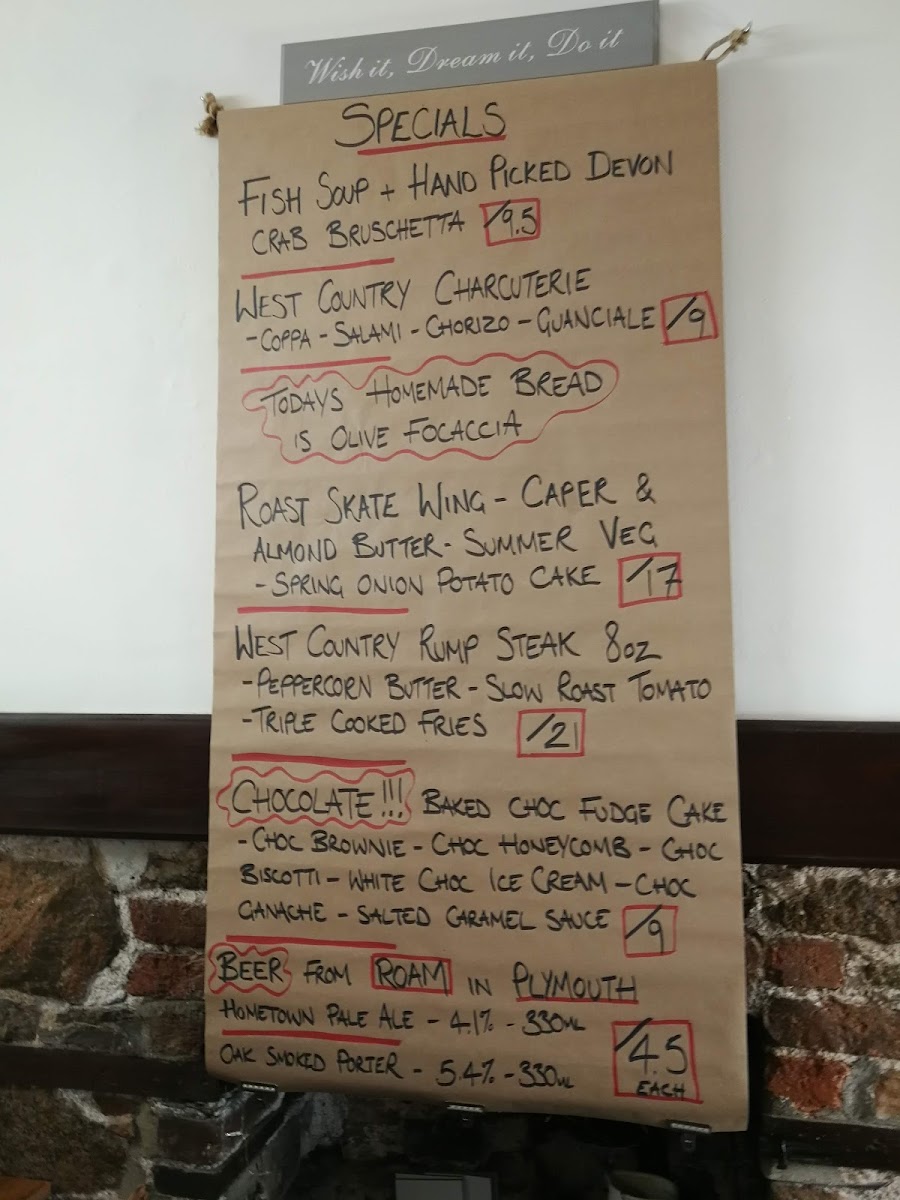 Wish it, Dream it, Do it
SPECIALS
FISH SOUP + HAND PICKED DEVON
CRAB BRUSCHETTA /9.5
WEST COUNTRY CHARCUTERIE
-COPPA - SALAMI - CHORIZO - GUANCIALE /9
TODAYS HOMEMADE BREAD
IS OLIVE FOCACCIA
ROAST SKATE WING - CAPER &
ALMOND BUTTER - SUMMER VEG
- SPRING ONION POTATO CAKE /17
WEST COUNTRY RUMP STEAK 8OZ
-PEPPERCORN BUTTER - SLOW ROAST TOMATO
-TRIPLE COOKED FRIES /21
CHOCOLATE!!! BAKED CHOC FUDGE CAKE
- CHOC BROWNIE - CHOC HONEYCOMB - CHOC
BISCOTTI - WHITE CHOC ICE CREAM - CHOC
GANACHE - SALTED CARAMEL SAUCE /9
BEER FROM ROAM IN PLYMOUTH
HOMETOWN PALE ALE - 4.1% - 330ML
OAK SMOKED PORTER - 5.4% - 330ML
/4.5
EACH